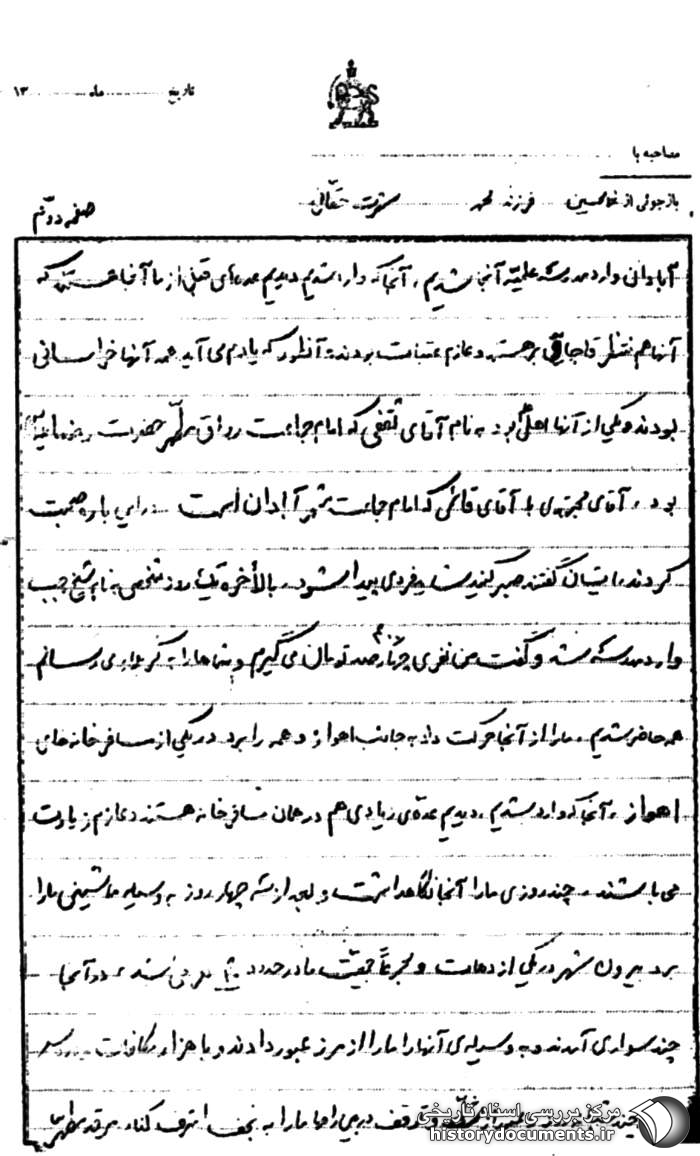 تاریخ ............ ماه ............ ۱۳
مصاحبه با
بازجوئی از غلامحسین فرزند محمد شهرت حقانی
صفحه دوم
آبادانی وارد مدرسه علمیه آنجا شدیم، آنجا که وارد شدیم دیدیم عده‌ای قبل از ما آنجا هستند که
آنها هم منتظر قاچاقی بر هستند و عازم عتبات بودند آنطور که یادم می آید همه آنها خراسانی
بودند و یکی از آنها اهل بود به نام آقای ثقفی که امام جماعت رواق مطهر حضرت رضا علیه
بود، آقای مجتهدی با آقای قائمی که امام جماعت شهر آبادان است در این باره صحبت
کردند، ایشان گفتند صبر کنید فردی پیدا شود، بالاخره یک روز شخصی به نام شیخ حبیب
وارد مدرسه شد و گفت من نفری چهارصد تومان می گیرم و شما را به کربلا می رسانم
همه حاضر شدیم، ما را از آنجا حرکت داد به جانب اهواز و همه را برد در یکی از مسافرخانه های
اهواز، آنجا که وارد شدیم، دیدیم عده‌ی زیادی هم در همان مسافرخانه هستند و عازم زیارت
می باشند، چند روزی ما را آنجا نگاهداشت و بعد از سه چهار روز به وسیله ماشینی ما را
برد بیرون شهر در یکی از دهات و مجموعاً جمعیت ما در حدود نفر می شد، در آنجا
چند سواری آمدند و به وسیله‌ی آنها ما را از مرز عبور دادند و با هزار مکافات
چند توقف در بین راه ما را به نجف اشرف کنار مرقد مطهر
مرکز بررسی اسناد تاریخی
historydocuments.ir